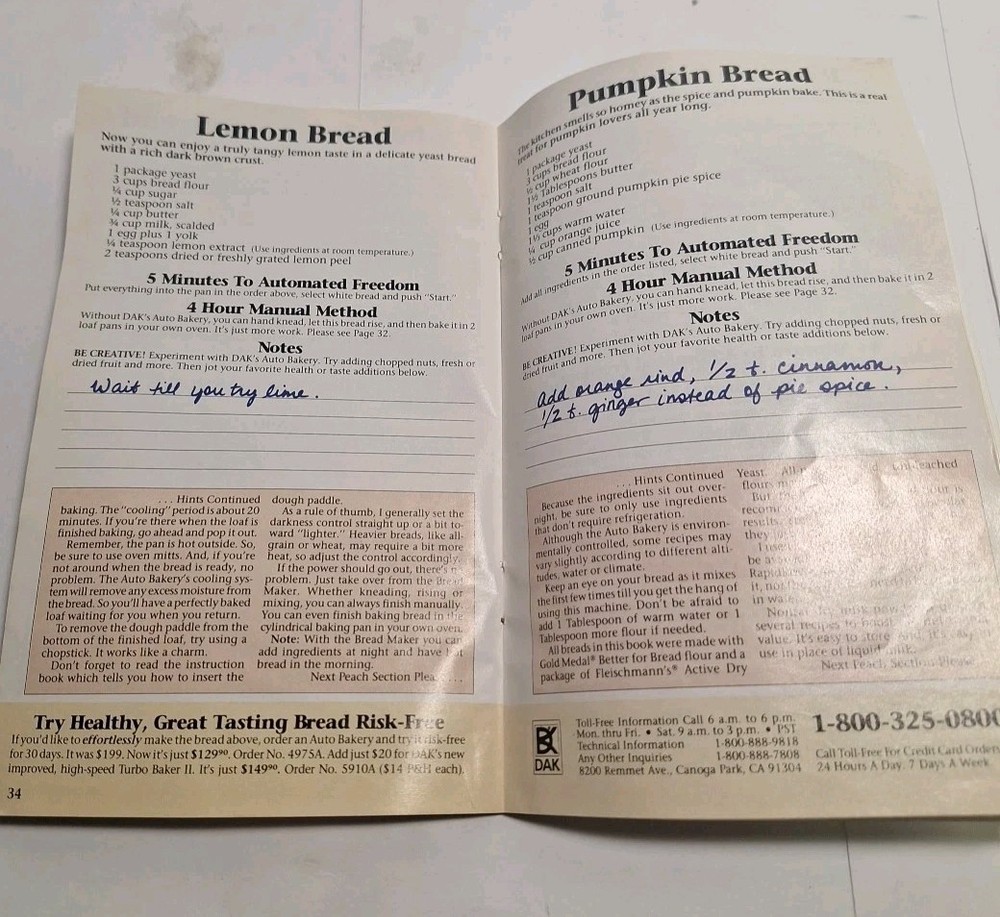 Lemon Bread
Now you can enjoy a truly tangy lemon taste in a delicate yeast bread
with a rich dark brown crust.
1 package yeast
3 cups bread flour
¼ cup sugar
½ teaspoon salt
¼ cup butter
¾ cup milk, scalded
1 egg plus 1 yolk
¼ teaspoon lemon extract (Use ingredients at room temperature.)
2 teaspoons dried or freshly grated lemon peel
5 Minutes To Automated Freedom
Put everything into the pan in the order above, select white bread and push "Start."
4 Hour Manual Method
Without DAK's Auto Bakery, you can hand knead, let this bread rise, and then bake it in 2
loaf pans in your own oven. It's just more work. Please see Page 32.
Notes
BE CREATIVE! Experiment with DAK's Auto Bakery. Try adding chopped nuts, fresh or
dried fruit and more. Then jot your favorite health or taste additions below.
Wait till you try lime.
. . . Hints Continued
baking. The "cooling" period is about 20
minutes. If you're there when the loaf is
finished baking, go ahead and pop it out.
Remember, the pan is hot outside. So,
be sure to use oven mitts. And, if you're
not around when the bread is ready, no
problem. The Auto Bakery's cooling sys-
tem will remove any excess moisture from
the bread. So you'll have a perfectly baked
loaf waiting for you when you return.
To remove the dough paddle from the
bottom of the finished loaf, try using a
chopstick. It works like a charm.
Don't forget to read the instruction
book which tells you how to insert the
dough paddle.
As a rule of thumb, I generally set the
darkness control straight up or a bit to-
ward "lighter." Heavier breads, like all-
grain or wheat, may require a bit more
heat, so adjust the control accordingly.
If the power should go out, there's n
problem. Just take over from the Bread
Maker. Whether kneading, rising or
mixing, you can always finish manually.
You can even finish baking bread in the
cylindrical baking pan in your own oven.
Note: With the Bread Maker you can
add ingredients at night and have hot
bread in the morning.
Next Peach Section Plea . . . .
Try Healthy, Great Tasting Bread Risk-Free
If you'd like to effortlessly make the bread above, order an Auto Bakery and try it risk-free
for 30 days. It was $199. Now it's just $129⁹⁰. Order No. 4975A. Add just $20 for DAK's new
improved, high-speed Turbo Baker II. It's just $149⁹⁰. Order No. 5910A ($14 P&H each).
34
Pumpkin Bread
The kitchen smells so homey as the spice and pumpkin bake. This is a real
treat for pumpkin lovers all year long.
1 package yeast
3 cups bread flour
½ cup wheat flour
1½ Tablespoons butter
1 teaspoon salt
1 teaspoon ground pumpkin pie spice
1 egg
cups warm water
¼ cup orange juice
½ cup canned pumpkin (Use ingredients at room temperature.)
5 Minutes To Automated Freedom
Add all ingredients in the order listed, select white bread and push "Start."
4 Hour Manual Method
Without DAK's Auto Bakery, you can hand knead, let this bread rise, and then bake it in 2
loaf pans in your own oven. It's just more work. Please see Page 32.
Notes
BE CREATIVE! Experiment with DAK's Auto Bakery. Try adding chopped nuts, fresh or
dried fruit and more. Then jot your favorite health or taste additions below.
add orange rind, 1/2 t. cinnamon,
1/2 t. ginger instead of pie spice.
. . . Hints Continued
Because the ingredients sit out over-
night, be sure to only use ingredients
that don't require refrigeration.
Although the Auto Bakery is environ-
mentally controlled, some recipes may
vary slightly according to different alti-
tudes, water or climate.
Keep an eye on your bread as it mixes
the first few times till you get the hang of
using this machine. Don't be afraid to
add 1 Tablespoon of warm water or 1
Tablespoon more flour if needed.
All breads in this book were made with
Gold Medal® Better for Bread flour and a
package of Fleischmann's® Active Dry
Yeast. Unbleached
flour
But
recom
results,
they
I use
be as
Rapid
it, not
in wa
Nonfat
several recipes to boost
value. It's easy to store and it's
use in place of liquid milk.
Next Peach Section Please
DAK
Toll-Free Information Call 6 a.m. to 6 p.m.
Mon. thru Fri. • Sat. 9 a.m. to 3 p.m. • PST
Technical Information 1-800-888-9818
Any Other Inquiries 1-800-888-7808
8200 Remmet Ave., Canoga Park, CA 91304
1-800-325-0800
Call Toll-Free For Credit Card Orders
24 Hours A Day, 7 Days A Week